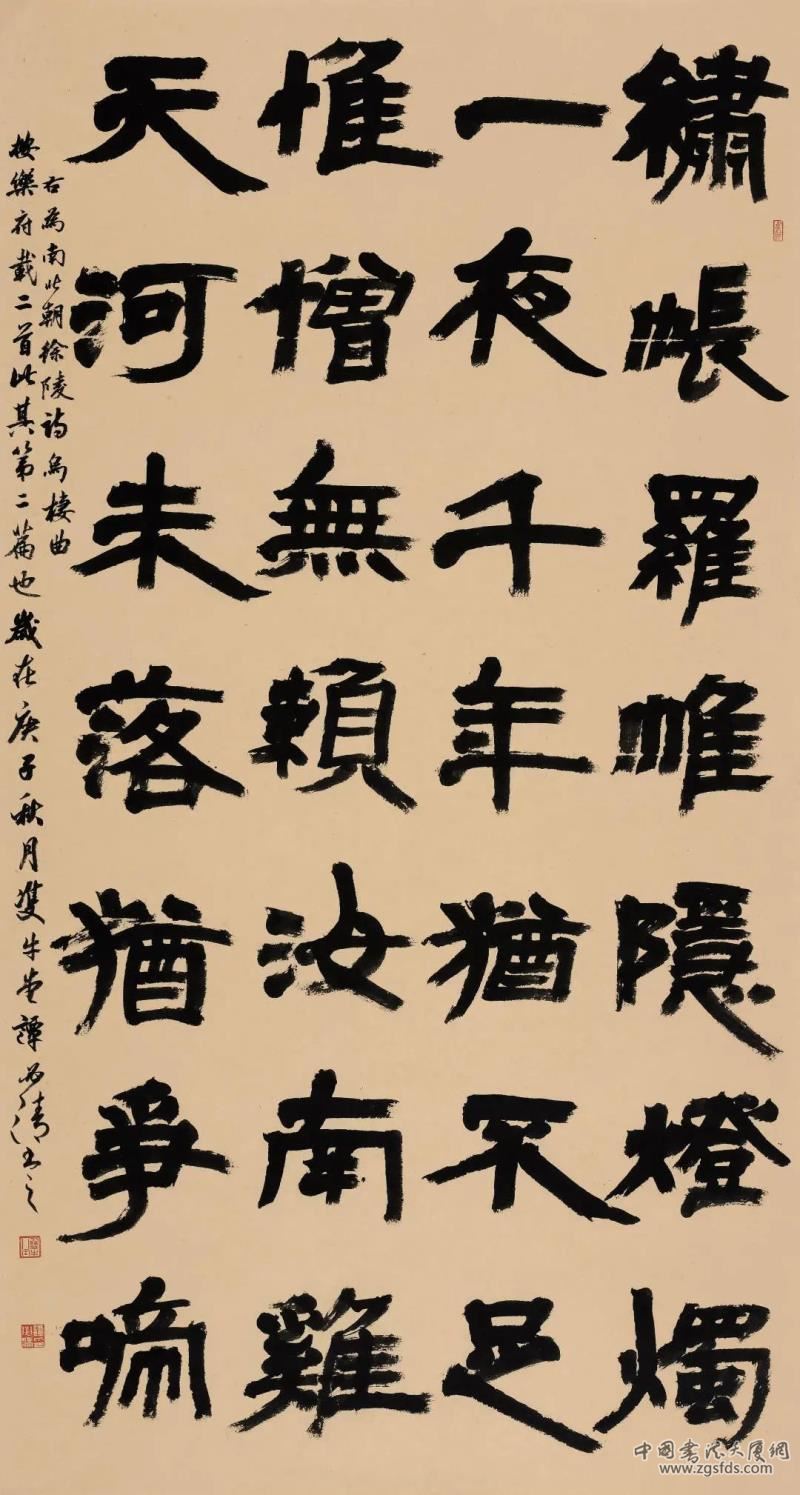 繡帳羅帷隱燈燭
一夜千年猶不足
惟憎無賴汝南雞
天河未落猶爭啼
右為南北朝徐陵詩烏棲曲
按樂府載二首此其第二篇也歲在庚子秋月雙牛堂譚清書之
中国書法大厦網
www.zgsfds.com